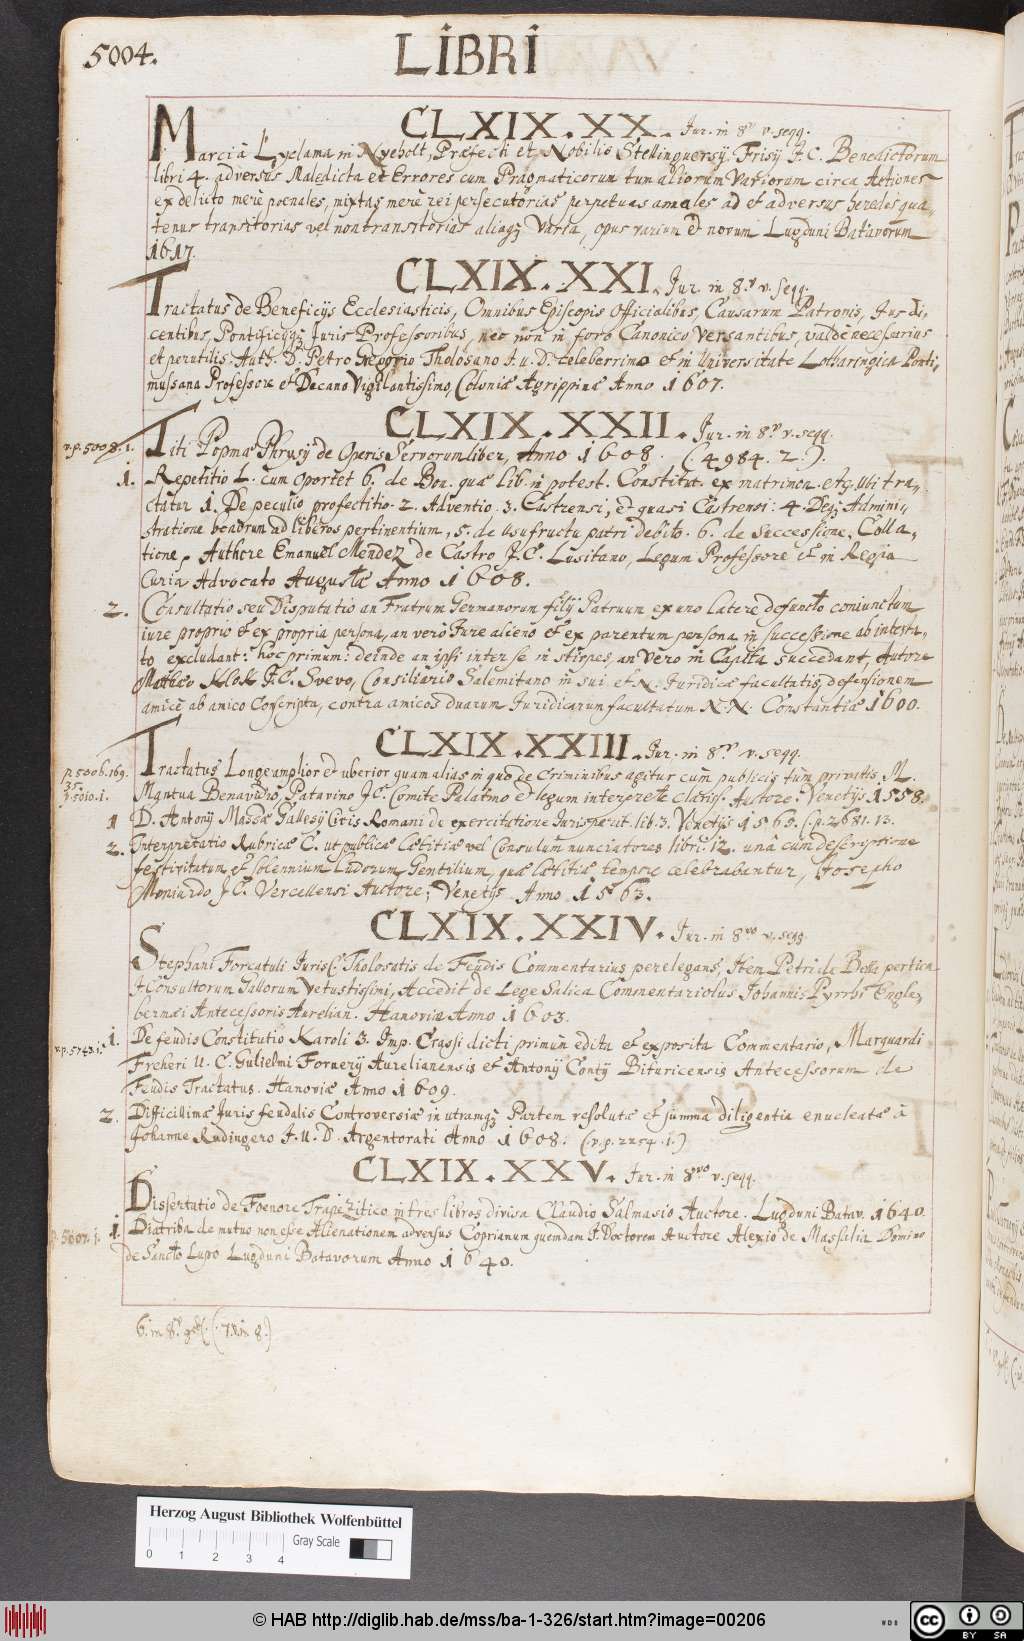 5004.
LIBRI
CLXIX. XX. Jur. in 8vo v. seqq.
Marci à Lyclama in Nyeholt, Præfecti et Nobilis Stellinguersij Frisij J. C. Benedictorum
libri 4. adversus Maledicta et Errores cum Pragmaticorum tum aliorum Variorum circa Actiones
ex delicto merè poenales, mixtas merè rei persecutorias perpetuas annales ad et adversus heredes qua-
tenus transitorias vel non transitorias aliaqz Varia, opus varium et novum Lugduni Batavorum
1617.
CLXIX. XXI. Jur. in 8.v v. seqq.
Tractatus de Beneficijs Ecclesiasticis, Omnibus Episcopis Officialibus, Causarum Patronis, Jus di-
centibus, Pontificijqz Juris Professoribus, nec non in foro Canonico Versantibus, valdè necessarius
et perutilis. Auth. D. Petro Gregorio Tholosano J. u. D. celeberrimo et in Universitate Lotharingica Ponti-
mussana Professore et Decano Vigilantissimo, Coloniæ Agrippinæ Anno 1607.
CLXIX. XXII. Jur. in 8vo v. seqq.
v. p. 5008. 1. Titi Popmæ Phrysij de Operis Servorum liber, Anno 1608. (4984. 2.).
1. Repetitio L. cum oportet 6. de Bon. quæ lib. in potest. Constitut. ex matrimon. etc. Ubi tra-
ctatur 1. De peculio profectitio. 2. Adventio. 3. Castrensi, et quasi Castrensi: 4. Deqz Admini-
stratione bonorum ad liberos pertinentium, 5. de Usufructu patri debito. 6. de Successione, Colla-
tione, Authore Emanuel Mendez de Castro J. C. Lusitano, Legum Professore et in Regia
Curia Advocato Augustæ Anno 1608.
2. Consultatio seu Disputatio an Fratrum Germanorum filij Patruum ex uno latere defuncto coniunctum
iure proprio et ex propria persona, an verò Jure alieno et ex parentum persona in successione ab intesta-
to excludant: hoc primum: deinde an ipsi inter se in stirpes, an Vero in Capita succedant, Autore
Matthæo Klok J. C. Svevo, Consiliario Salemitano in sui et N: Juridicæ facultatis defensionem
amicè ab amico Conscripta, contra amicos duarum Juridicarum facultatum N. N: Constantiæ 1600.
CLXIX. XXIII. Jur. in 8vo v. seqq.
p. 5006. 169.
35.
v. 5010. 1.
Tractatus Longe amplior et uberior quam alias in quo de Criminibus agitur cùm publicis tùm privatis M.
Mantua Benavidio Patavino J. C. Comite Palatino et legum interprete clariss. Autore. Venetijs 1558.
1 D. Antonij Massæ Gallesij Civis Romani de exercitatione Jurisperit. lib. 3. Venetijs 1565. (p. 2681. 13.
2. Interpretatio Rubricæ C. ut publicæ Lætitiæ vel Consulum nunciatores libri. 12. unà cum descriptione
festivitatum et solennium Ludorum Gentilium, quæ lætitiæ tempore celebrabantur, Josepho
Moniardo J. C. Vercellensi Auctore; Venetijs Anno 1563.
CLXIX. XXIV. Jur. in 8vo v. seqq.
Stephani Forcatuli Jurisc. Tholosatis de Feudis Commentarius perelegans, Item Petri de Bella pertica
JConsultorum Gallorum Vetustissimi, Accedit de Lege Salica Commentariolus Johannis Pyrrhi Engle-
bermæi Antecessoris Aurelian. Hanoviæ Anno 1603.
v. p. 5743. 1. 1. De feudis Constitutio Karoli 3. Imp. Crassi dicti primùm edita et exposita Commentario, Marquardi
Freheri U. C. Gulielmi Fornerij Aurelianensis et Antonij Contij Bituricensis Antecessorum de
Feudis Tractatus. Hanoviæ Anno 1609.
2. Difficillimæ Juris feudalis Controversiæ in utramqz Partem resolutæ et summa diligentia enucleatæ à
Johanne Rudingero J. U. D. Argentorati Anno 1608. (v. p. 2254. 1.)
CLXIX. XXV. Jur. in 8vo v. seqq.
Dissertatio de Foenore Trapezitico in tres libros divisa Claudio Salmasio Auctore. Lugduni Batav. 1640.
5607. 1. 1. Diatriba de mutuo non esse Alienationem adversus Coprianum quemdam J. Doctorem Auctore Alexio de Massalia Domino
de Sancto Lupo Lugduni Batavorum Anno 1640.
Herzog August Bibliothek Wolfenbüttel
Gray Scale
0 1 2 3 4
© HAB http://diglib.hab.de/mss/ba-1-326/start.htm?image=00206
WDB
cc BY SA